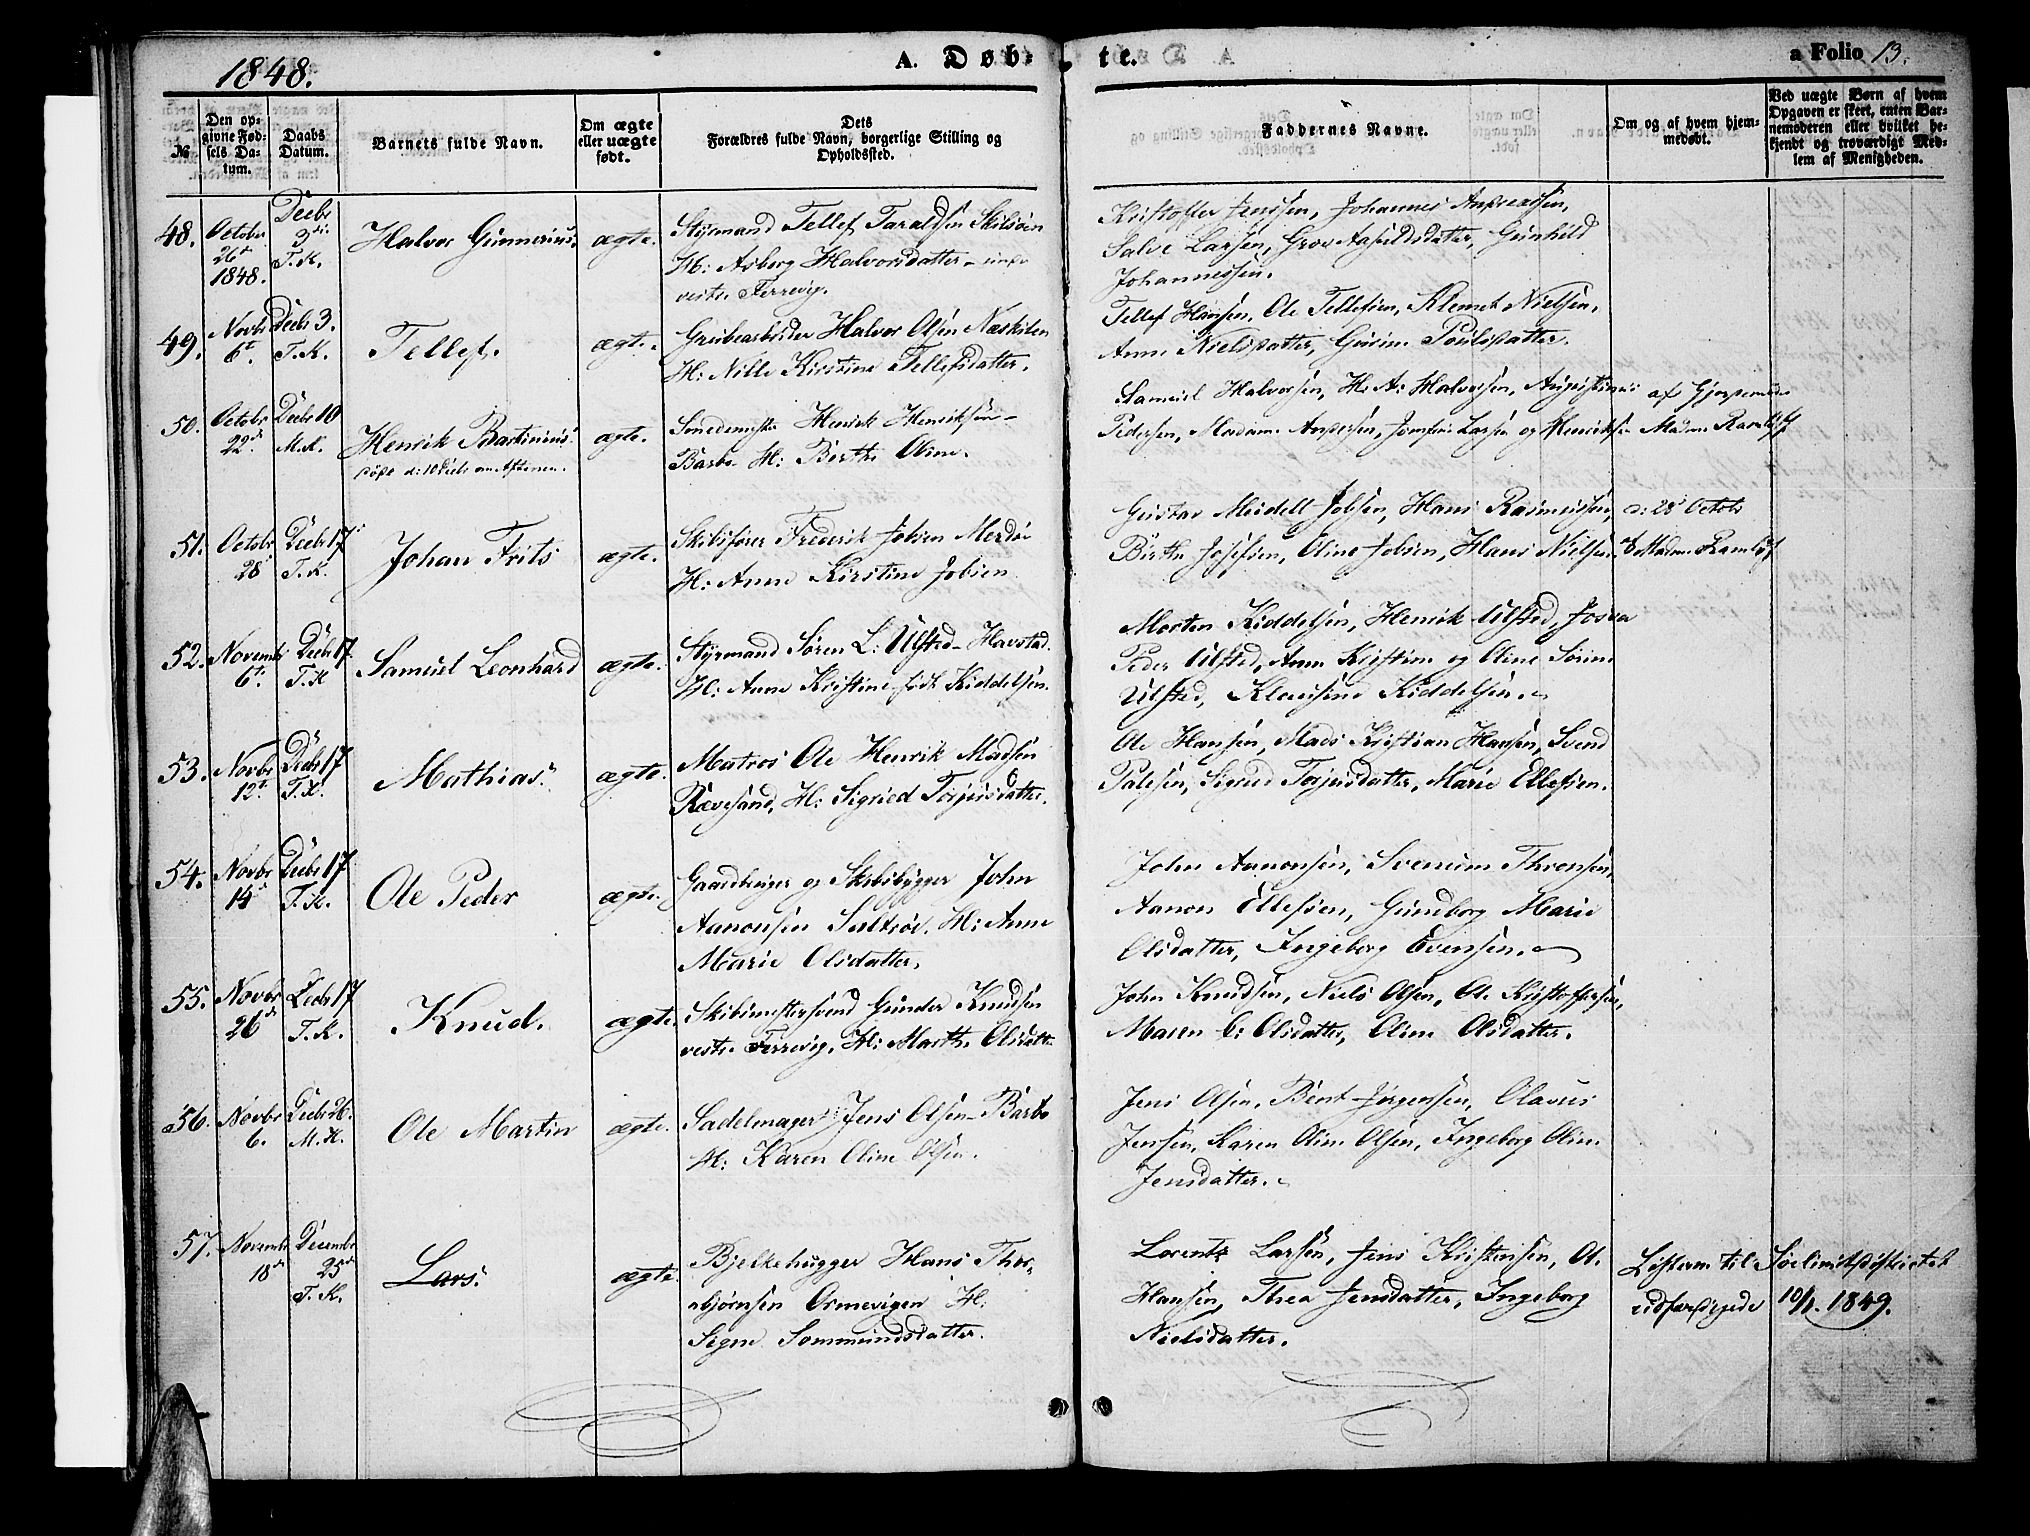 1848.
A. Døb-
te.
a Folio 13.
№
Den op-
givne Fød-
sels Da-
tum.
Daabs
Datum.
Barnets fulde Navn.
Om ægte
eller uægte
født.
Dets
Forældres fulde Navn, borgerlige Stilling og
Opholdssted.
Faddernes Navne.
Om og af hvem hjem-
medøbt.
Ved uægte Børn af hvem
Opgaven er skeet, enten Bar-
nemoderen eller hvilket be-
kjendt og troværdigt Med-
lem af Menigheden.
48.
Octobr
26de
1848.
Decbr
3die
T. K.
Halvor Gunnerius.
ægte.
Styrmand Tellef Taraldsen Skilsøen
H: Asberg Halvorsdatter
vestre Ferrevig.
Kristoffer Jenssen, Johannes Andreassen,
Salve Larsen, Groe Aasuldsdatter, Gunhild
Johannessen.
49.
Novbr
6te.
Decbr 3.
T. K.
Tellef.
ægte.
Grubearbeider Halvor Olsen Næskilen
H: Nille Kirstine Tellefsdatter.
Tellef Hansen, Ole Tellefsen, Klemet Nielsen,
Anne Nielsdatter, Gurine Poulsdatter.
50.
Octobr
22de
Decbr 10
M. K.
Henrik Bartinius.
døbt d: 10 Decbr om Aftenen.
ægte.
Smedemester Henrik Henriksen
Barbo H: Birthe Oline.
Samuel Halvorsen, H. A. Halvorsen, Augustinus
Pedersen, Madam Andersen, Jomfrue Larsen og Henriksen
af Gjordemoder
Madm Ramløff
51.
Octobr
28
Decbr 17de
T. K.
Johan Frits
ægte.
Skibsfører Frederik Jobsen Merdøe
H: Anne Kirstine Jobsen
Gustav Meidell Jobsen, Hans Rasmussen,
Birthe Josefsen, Oline Jobsen, Hans Nielsen.
d: 28 Octob
af Madm Ramløf
52.
Novembr
6te.
Decbr 17
T. K
Samuel Leonhard
ægte.
Styrmand Søren L: Ulsted Havstad.
H: Anne Kristine født Kiddelsen.
Morten Kiddelsen, Henrik Ulsted, Josva
Peder Ulsted, Anne Kristine og Oline Sørine
Ulsted, Klausine Kiddelsen.
53.
Novbr
12te.
Decbr 17
T. K.
Mathias.
ægte.
Matros Ole Henrik Madsen
Rævesand, H: Sigried Torjusdatter.
Ole Hansen, Mads Kristian Hansen, Svend
Palesen, Sigrid Torjusdatter, Marie Ellefsen.
54.
Novbr
14de
Decbr 17
T. K.
Ole Peder
ægte.
Gaardbruger og Skibsbygger John
Aanonsen Saltrøe. H: Anne
Marie Olsdatter,
John Aanonsen, Svenum Thronsen,
Aanon Ellefsen, Gundborg Marie
Olsdatter, Ingeborg Evensen.
55.
Novbr
26de
Decbr 17
T. K.
Knud.
ægte.
Skibsmestersvend Gunder Knudsen
vestre Ferrevig. H: Marthe Olsdatter
John Knudsen, Niels Olsen, Ole Kristoffersen,
Maren C: Olsdatter, Oline Olsdatter.
56.
Novbr
6.
Decbr 26.
M. K.
Ole Martin
ægte.
Sadelmager Jens Olsen Barbo
H: Karen Oline Olsen.
Jens Olsen, Bent Jørgensen, Olavus
Jenssen, Karen Oline Olsen, Ingeborg Oline
Jensdatter.
57.
Novembr
18de
Decembr
25de
T. K.
Lars.
ægte.
Bjelkehugger Hans Thor-
bjørnsen Ormevigen H:
Signe Sommundsdatter.
Lorentz Larsen, Jens Kristensen, O.
Hansen, Thea Jensdatter, Ingeborg
Nielsdatter.
Listerne til Sølimitsdistrictet
udfærdigede 10/1. 1849.